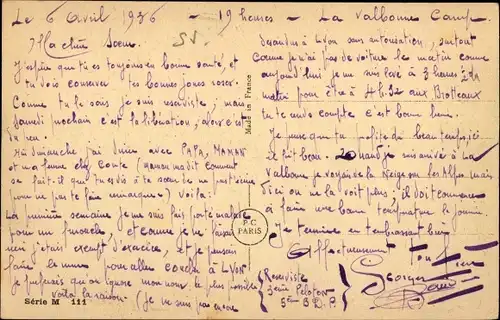 Le 6 Avril 1936 - 19 heures - La Valbonne Camp
Ma chère Soeur.
J'espère que tu es toujours en bonne santé, et
tu vois conserver tes bonnes joues roses.
Comme tu le sais je suis réserviste; mais
samedi prochain c'est la libération, alors c'est
du peu.
dimanche j'ai diné avec PAPA, MAMAN
et ma femme chez (maman m'a dit comment
se fait-il que tu es dis à ta soeur de ne pas venir
pour ne pas te faire remarquer) Voilà:
La première semaine je me suis fais porter malade
pour un et comme je ne faisais
rien j'étais exempt d'exercice, et je pensais
faire le mur pour aller coucher à LYON
Je préférais qu'on ignore mon nom le plus possible
Voilà la raison (Je ne suis pas encore
descendre à Lyon sans autorisation, surtout
comme je n'ai pas de voiture le matin comme
aujourd'hui je me suis levé à 3 heures du
matin pour être à 4h.32 aux Brotteaux
tu te rends compte c'est bonne heure.
Je pense que tu profite du beau temps, ici
il fait beau. Quand je suis arrivé à La
Valbonne je voyais de la neige sur les Alpes mais
d'ici on ne la voit plus, il doit commencer
à faire une bonne température la journée.
Je termine en t'embrassant bien
Affectueusement ton frère
Georges
(Réserviste
3ème Peloton
5me B.D.P.)
Made in France
P.C
PARIS
Série M 111